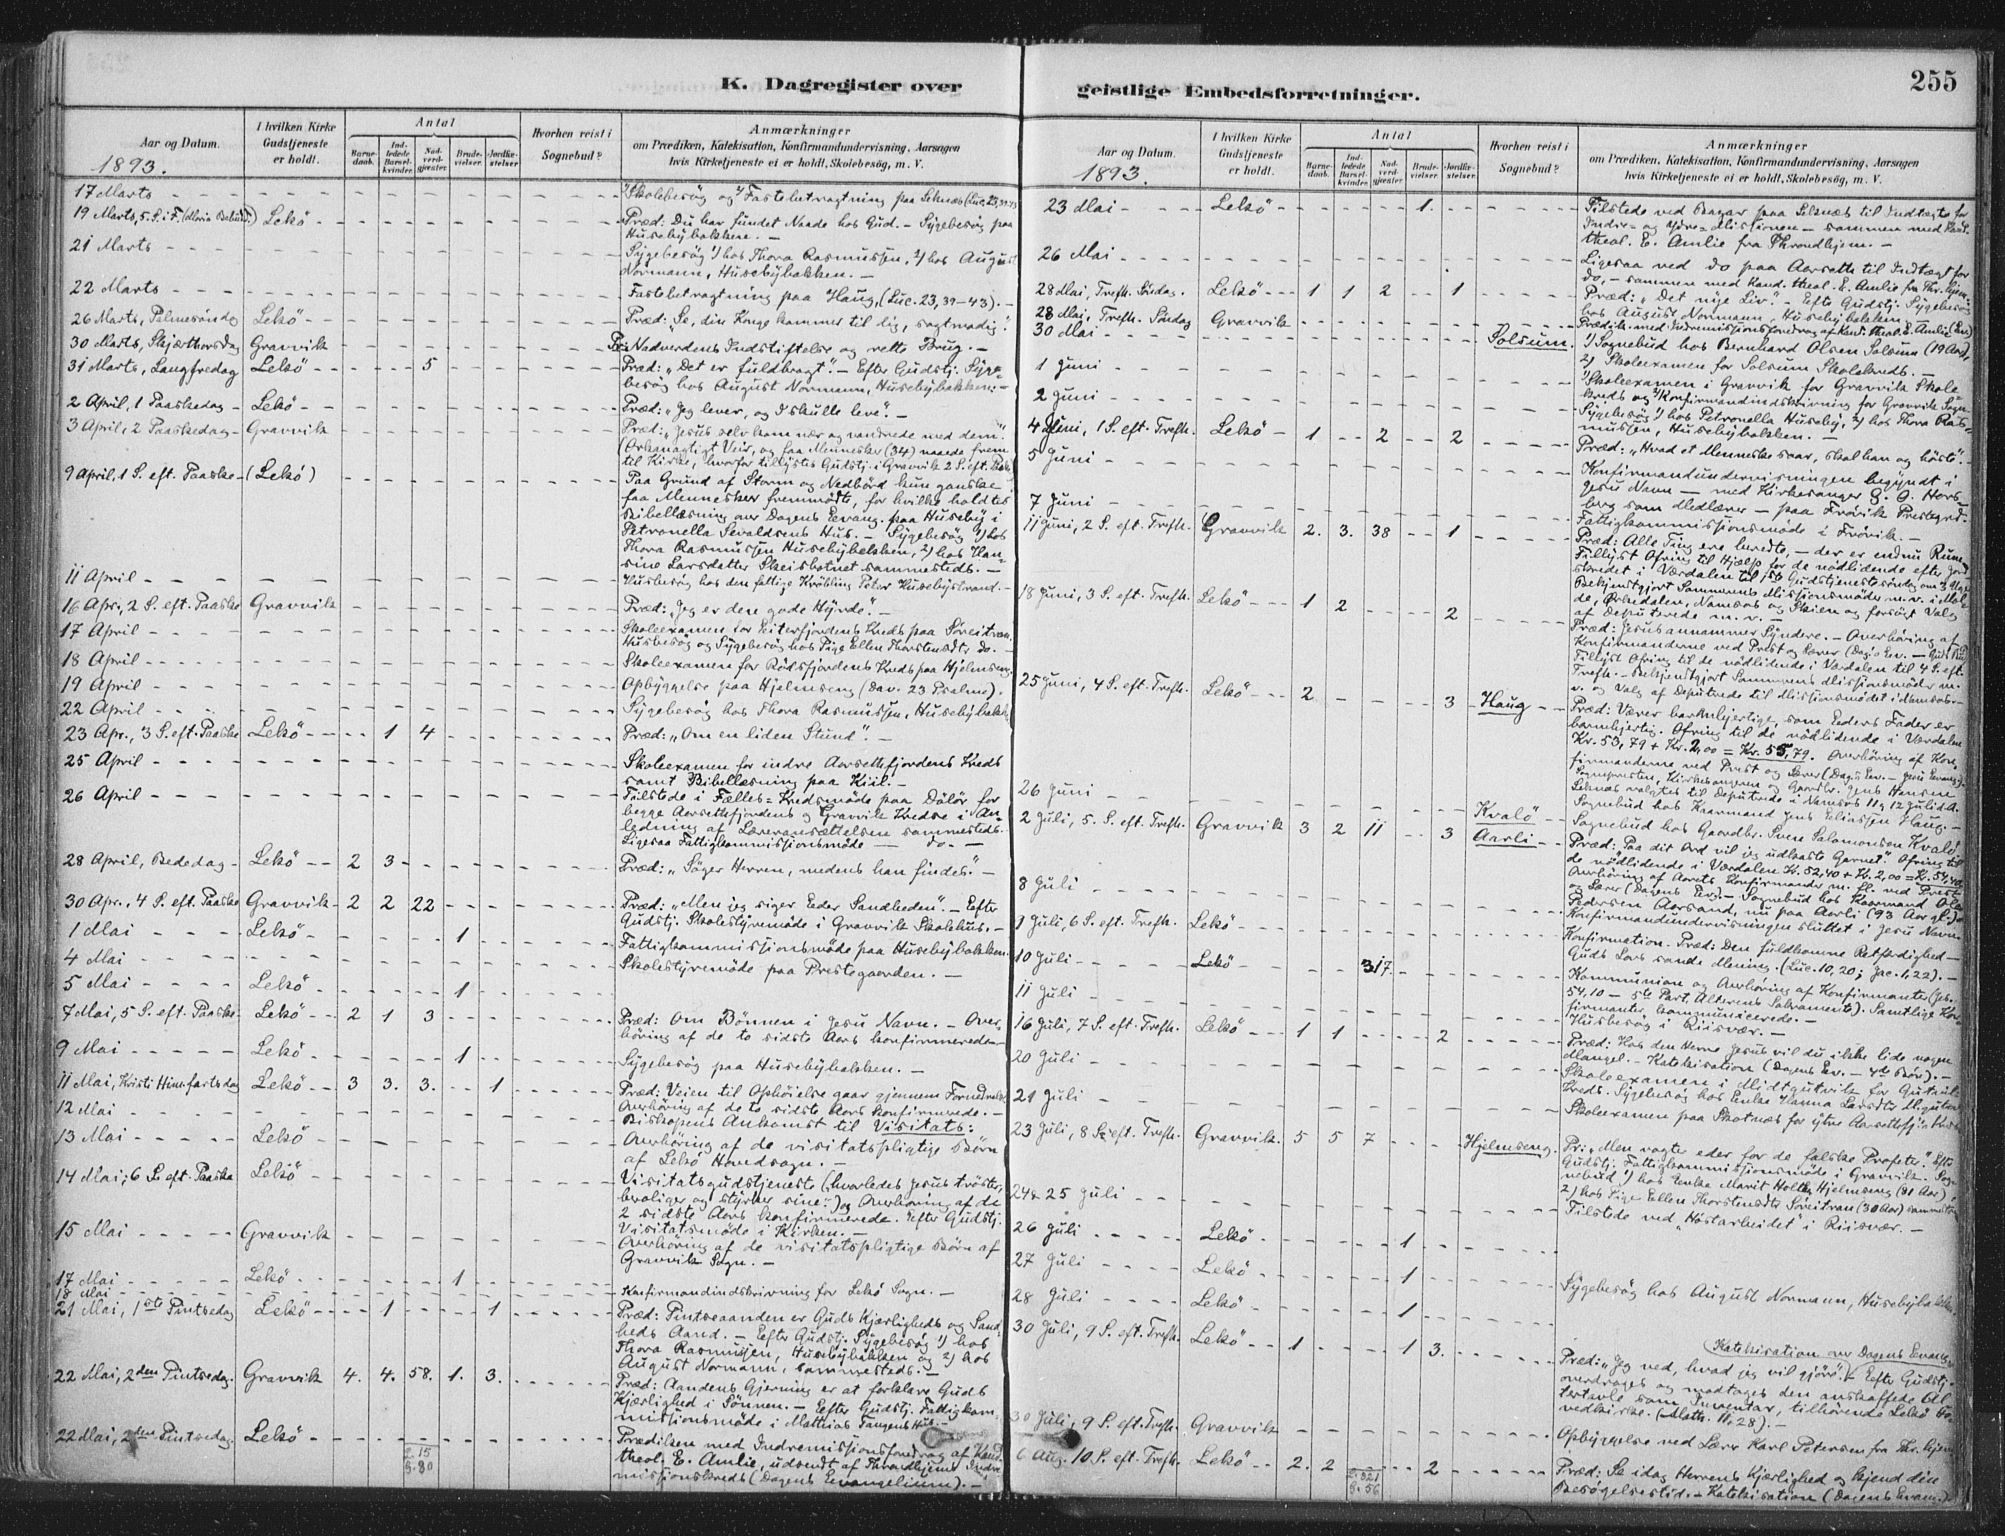 K. Dagregister over
geistlige Embedsforretninger.
255
Aar og Datum.
I hvilken Kirke Gudstjeneste er holdt.
Antal
Barnedaab.
Indledede Barselkvinder.
Nadverdgjæster.
Brudevielser.
Jordfæstelser.
Hvorhen reist i Sognebud?
Anmærkninger
om Prædiken, Katekisation, Konfirmandundervisning, Aarsagen
hvis Kirketjeneste ei er holdt, Skolebesøg, m. V.
1893.
17 Marts
Skolebesøg og Fastebetragtning paa Seknæs
19 Marts, 5. S. i F. Lekö
Præd: Du har fundet Naade hos Gud. – Sygebesøg paa
Husebybakken. –
21 Marts
Sygebesøg 1) hos Thora Rasmussen, 2) hos August
Normann, Husebybakken. –
22 Marts
Fastebetragtning paa Haug, (Luc. 23, 39–43). –
26 Marts, Palmesøndag Lekö
Præd: „Se, din Konge kommer til dig, sagtmodig".
30 Marts, Skjærthorsdag Gravvik
Pr: Nadverdens Indstiftelse og rette Brug. –
31 Marts, Langfredag Lekö 5
Præd: „Det er fuldbragt". – Efter Gudstj. Syge-
besøg hos August Normann, Husebybakken. –
2 April, 1 Paaskedag – Lekö
Præd: „Jeg lever, og I skulle leve". –
3 April, 2 Paaskedag – Gravvik
Præd: „Jesus selv kom nær og vandrede med dem".
(Orkanagtigt Veir, og faa Mennesker (34) naaede frem
til Kirke, hvorfor tillystes Gudstj. i Gravvik 2 S. eft. Paaske)
9 April, 1 S. eft. Paaske – (Lekö)
Paa Grund af Storm og Nedbörd kun ganske
faa Mennesker fremmødte, for hvilke holdtes
Bibellæsning over Dagens Evang. paa Huseby i
Petronella Sevaldsens Hus. – Sygebesøg 1) hos
Thora Rasmussen Husebybakken, 2) hos Han-
sine Larsdatter Skeisbotnet sammesteds. –
11 April
Husbesøg hos den fattige Krøbling Peter Husebystrand. –
16 Apr., 2 S. eft. Paaske Gravvik
Præd: „Jeg er den gode Hyrde". –
17 April
Skoleexamen for Eiterfjordens Kreds paa Søreitran.
Husbesøg og Sygebesøg hos Pige Ellen Thorstensdtr do. –
18 April
Skoleexamen for Rødsfjordens Kreds paa Hjelmseng.
19 April
Opbyggelse paa Hjelmseng (Dav. 23 Psalme).
22 April
Sygebesøg hos Thora Rasmussen, Husebybakk.
23 Apr., 3 S. eft. Paaske Lekö 1 4
Præd: „Om en liden Stund". –
25 April
Skoleexamen for indre Aarsetfjordens Kreds
samt Bibellæsning paa Kiil. –
26 April
Tilstede i Fælles-Kredsmøde paa Dölör for
begge Aarsetfjordens og Gravvik Kredse i An-
ledning af Læreransættelsen sammesteds. –
Ligesaa Fattigkommissionsmøde — do. –
28 April, Bededag – Lekö 2 3
Præd: „Søger Herren, medens han findes". –
30 Apr., 4 S. eft. Paaske Gravvik 2 2 22
Præd: „Men jeg siger Eder Sandheden". – Efter
Gudstj. Skolestyremøde i Gravvik Skolehus. –
1 Mai Lekö 1
Fattigkommissionsmøde paa Husebybakken.
4 Mai
Skolestyremøde paa Prestegaarden. –
5 Mai Lekö 1
7 Mai, 5 S. eft. Paaske Lekö 2 1 3
Præd: Om Bønnen i Jesu Navn. – Over-
höring af de to sidste Aars konfirmerede –
9 Mai Lekö 1
Sygebesøg paa Husebybakken. –
11 Mai, Kristi Himmelfartsdag Lekö 3 3. 3. 1
Præd: Veien til Ophöielse gaar gjennem Fornedrelse
Overhöring af de to sidste Aars konfirmerede. –
12 Mai
Biskopens Ankomst til Visitats:
13 Mai Lekö
Overhöring af de visitatspligtige Børn
af Lekö Hovedsogn. –
14 Mai, 6 S. eft. Paaske Lekö
Visitatsgudstjeneste (hvorledes Jesus trøster,
bevoliger og styrker sine:) og Overhöring af de
2 sidste Aars konfirmerede. Efter Gudstj.
Visitatsmøde i Kirken. –
15 Mai Gravvik
Overhöring af de visitatspligtige Børn af
Gravvik Sogn. –
17 Mai Lekö 1
18 Mai
Konfirmandindskrivning for Lekö Sogn. –
21 Mai, 1ste Pintsedag Lekö 1 1
Præd: Pintseaanden er Guds Kjærligheds og Sand-
heds Aand. – Efter Gudstj. Sygebesøg 1) hos
Thora Rasmussen, Husebybakken og 2) hos
August Normann, sammesteds. –
22 Mai, 2den Pintsedag. Gravvik 4. 4. 58. 1. 3.
Præd: Aandens Gjerning er at forklare Guds
Kjærlighed i Sønnen. – Efter Gudstj. Fattigkom-
missionsmøde i Matthias Tangens Hus. –
22 Mai, 2den Pintsedag. Lekö
Prædiken med Indremissionsforedrag af Kand.
theol. E. Amlie, udsendt af Throndhjems Indre
missionskreds (Dagens Evangelium). –
2. 15
3. 80
Aar og Datum.
I hvilken Kirke Gudstjeneste er holdt.
Antal
Barnedaab.
Indledede Barselkvinder.
Nadverdgjæster.
Brudevielser.
Jordfæstelser.
Hvorhen reist i Sognebud?
Anmærkninger
om Prædiken, Katekisation, Konfirmandundervisning, Aarsagen
hvis Kirketjeneste ei er holdt, Skolebesøg, m. V.
1893.
23 Mai Lekö 1.
Tilstede ved Bazar paa Seknæs til Indtægt for
Indre- og Ydre-Missionen – sammen med Kand.
theol. E. Amlie fra Throndhjem. –
26 Mai
Ligesaa ved do paa Aarsette til Indtægt for
do, – sammen med Kand. theol. E. Amlie fra Thr.hjem
28 Mai, Trefh. Søndag. Lekö 1 1 2 1
Præd: „Det nye Liv". – Efter Gudstj. Sygebesøg
hos August Normann, Husebybakken. –
28 Mai, Trefh. Søndag Gravvik
Prædik. med Indremissionsforedrag af Kand. theol. E. Amlie
30 Mai Solsum.
1) Sognebud hos Bernhard Olsen Solsum (19 Aar),
2) Skoleexamen for Solsum Skolekreds. –
1 Juni
Skoleexamen i Gravvik for Gravvik Skole-
kreds og Konfirmandindskrivning for Gravvik Sogn.
2 Juni
Sygebesøg 1) hos Petronella Huseby, 2) hos Thora Ras-
mussen, Husebybakken. –
4 Juni, 1 S. eft. Trefh. Lekö 1 2 2
Præd: „Hvad et Menneske saar, skal han og høste". –
5 Juni
Konfirmandundervisningen begyndt i
Jesu Navn – med Kirkesanger
som Medlærer – paa Frøvik Prestegrd.
7 Juni
Fattigkommissionsmøde i Frøvik. –
11 Juni, 2 S. eft. Trefh. Gravvik 2. 3. 38 1
Præd: Alle Ting ere beredte, – der er endnu Rum.
Tillyst Ofring til Hjælp for de nødlidende efter Jord-
skredet i Værdalen til 1ste Gudstjenestesøndag om 3 Uger
Bekjentgjort Sommerens Missionsmøder m. v. i Mol-
de, Orkedalen, Namsos og Skien og forsøgt Valg
af Deputerede m. v. –
18 Juni, 3 S. eft. Trefh. Lekö 1 2 2
Præd: Jesus annammer Syndere. – Overhöring af
Konfirmanderne ved Prest og Lærer
Tillyst Ofring til de nødlidende i Værdalen til 4 S. eft.
Trefh. – Bekjentgjort Sommerens Missionsmøder m.
v. og Valg af Deputerede til Missionsmødet i Namsos. –
25 Juni, 4 S. eft. Trefh. Lekö 2 3 Haug
Præd: Værer barmhjertige, som Eders Fader er
barmhjertig. Ofring til de nødlidende i Værdalen
Kr. 53,79 + Kr. 2,00 = Kr. 55,79. Overhöring af Kon-
firmanderne ved Prest og Lærer
Sognepresten, Kirkesangeren og Gaardbr. Jens Hansen
Seknæs valgtes til Deputerede i Namsos 11 og 12 Juli d. A.
Sognebud hos Kaarmand Jens Eliassen Haug. –
26 Juni Kvalö
Sognebud hos Gaardbr. Svene Salomonsen Kvalö
2 Juli, 5. S. eft. Trefh. Gravvik 3 2 11 3 Aarli
Præd: „Paa dit Ord vil jeg udkaste Garnet". Ofring til
de nødlidende i Værdalen Kr. 52,40 + Kr. 2,00 = Kr. 54,40
Overhöring af Aarets Konfirmander m. fl. ved Prest
og Lærer (Dagens Ev.) – Sognebud hos Kaarmand Ole
Pedersen Aarsand, nu paa Aarli (93 Aar gl.)
8 Juli
Konfirmandundervisningen sluttet i Jesu Navn
Juli, 6 S. eft. Trefh. Lekö
Konfirmation. Præd: Den fuldkomne Retfærdighed –
Guds Lovs sande Mening. (Luc. 10, 20; Jac. 1, 22). –
10 Juli Lekö 317.
Kommunion og Overhöring af Konfirmanter (Jes.
54, 10 – 5te Part, Alterens Sakramente). Samtlige Kon-
firmanter kommunicerede. –
11 Juli
Husbesøg i Riisvær. –
16 Juli, 7 S. eft. Trefh. Lekö 1 1 2
Præd: Hos den Herre Jesus vil du ikke lide nogen
Mangel. – Katekisation (Dagens Ev. – 4de Bøn). –
20 Juli
Skoleexamen i Midtgutvik for Gutvik
Kreds. Sygebesøg hos Enke Hanna Larsdtr
21 Juli
Skoleexamen paa Skotnæs for ytre Aarsetfj. Kreds
23 Juli, 8 S. eft. Trefh. Gravvik. 5 5 7 Hjelmseng.
Pr: „Men vogter eder for de falske Profeter". Efter
Gudstj. Fattigkommissionsmøde i Gravvik. Sog-
nebud 1) hos Enke Marit Holte, Hjelmseng (81 Aar),
2) hos Pige Ellen Thorstensdtr Søreitran (30 Aar) sammesteds
24 & 25 Juli
Tilstede ved „Høstarbeidet" i Riisvær. –
26 Juli Lekö 1
27 Juli Lekö 1
28 Juli Lekö 1
Sygebesøg hos August Normann, Husebybakken
30 Juli, 9 S. eft. Trefh. Lekö 1 1 3.
Katekisation ov. Dagens Evang.
Præd: „Jeg ved, hvad jeg vil gjøre". – Efter Gudstj.
overdroges og modtoges den anskaffede Al-
tertavle som Inventar, tilhørende Lekö Ho-
vedkirke. (Math. 11, 28). –
30 Juli, 9 S. eft. Trefh. Gravvik
Opbyggelse ved Lærer Karl Petersen fra Thr.hjem
6 Aug. 10 S. eft. Trefh. Lekö 2. 2 2
Præd: Se idag Herrens Kjærlighed og kjend din
Besøgelsestid. – Katekisation (Dagens Evang.) –
2. 321
3. 56